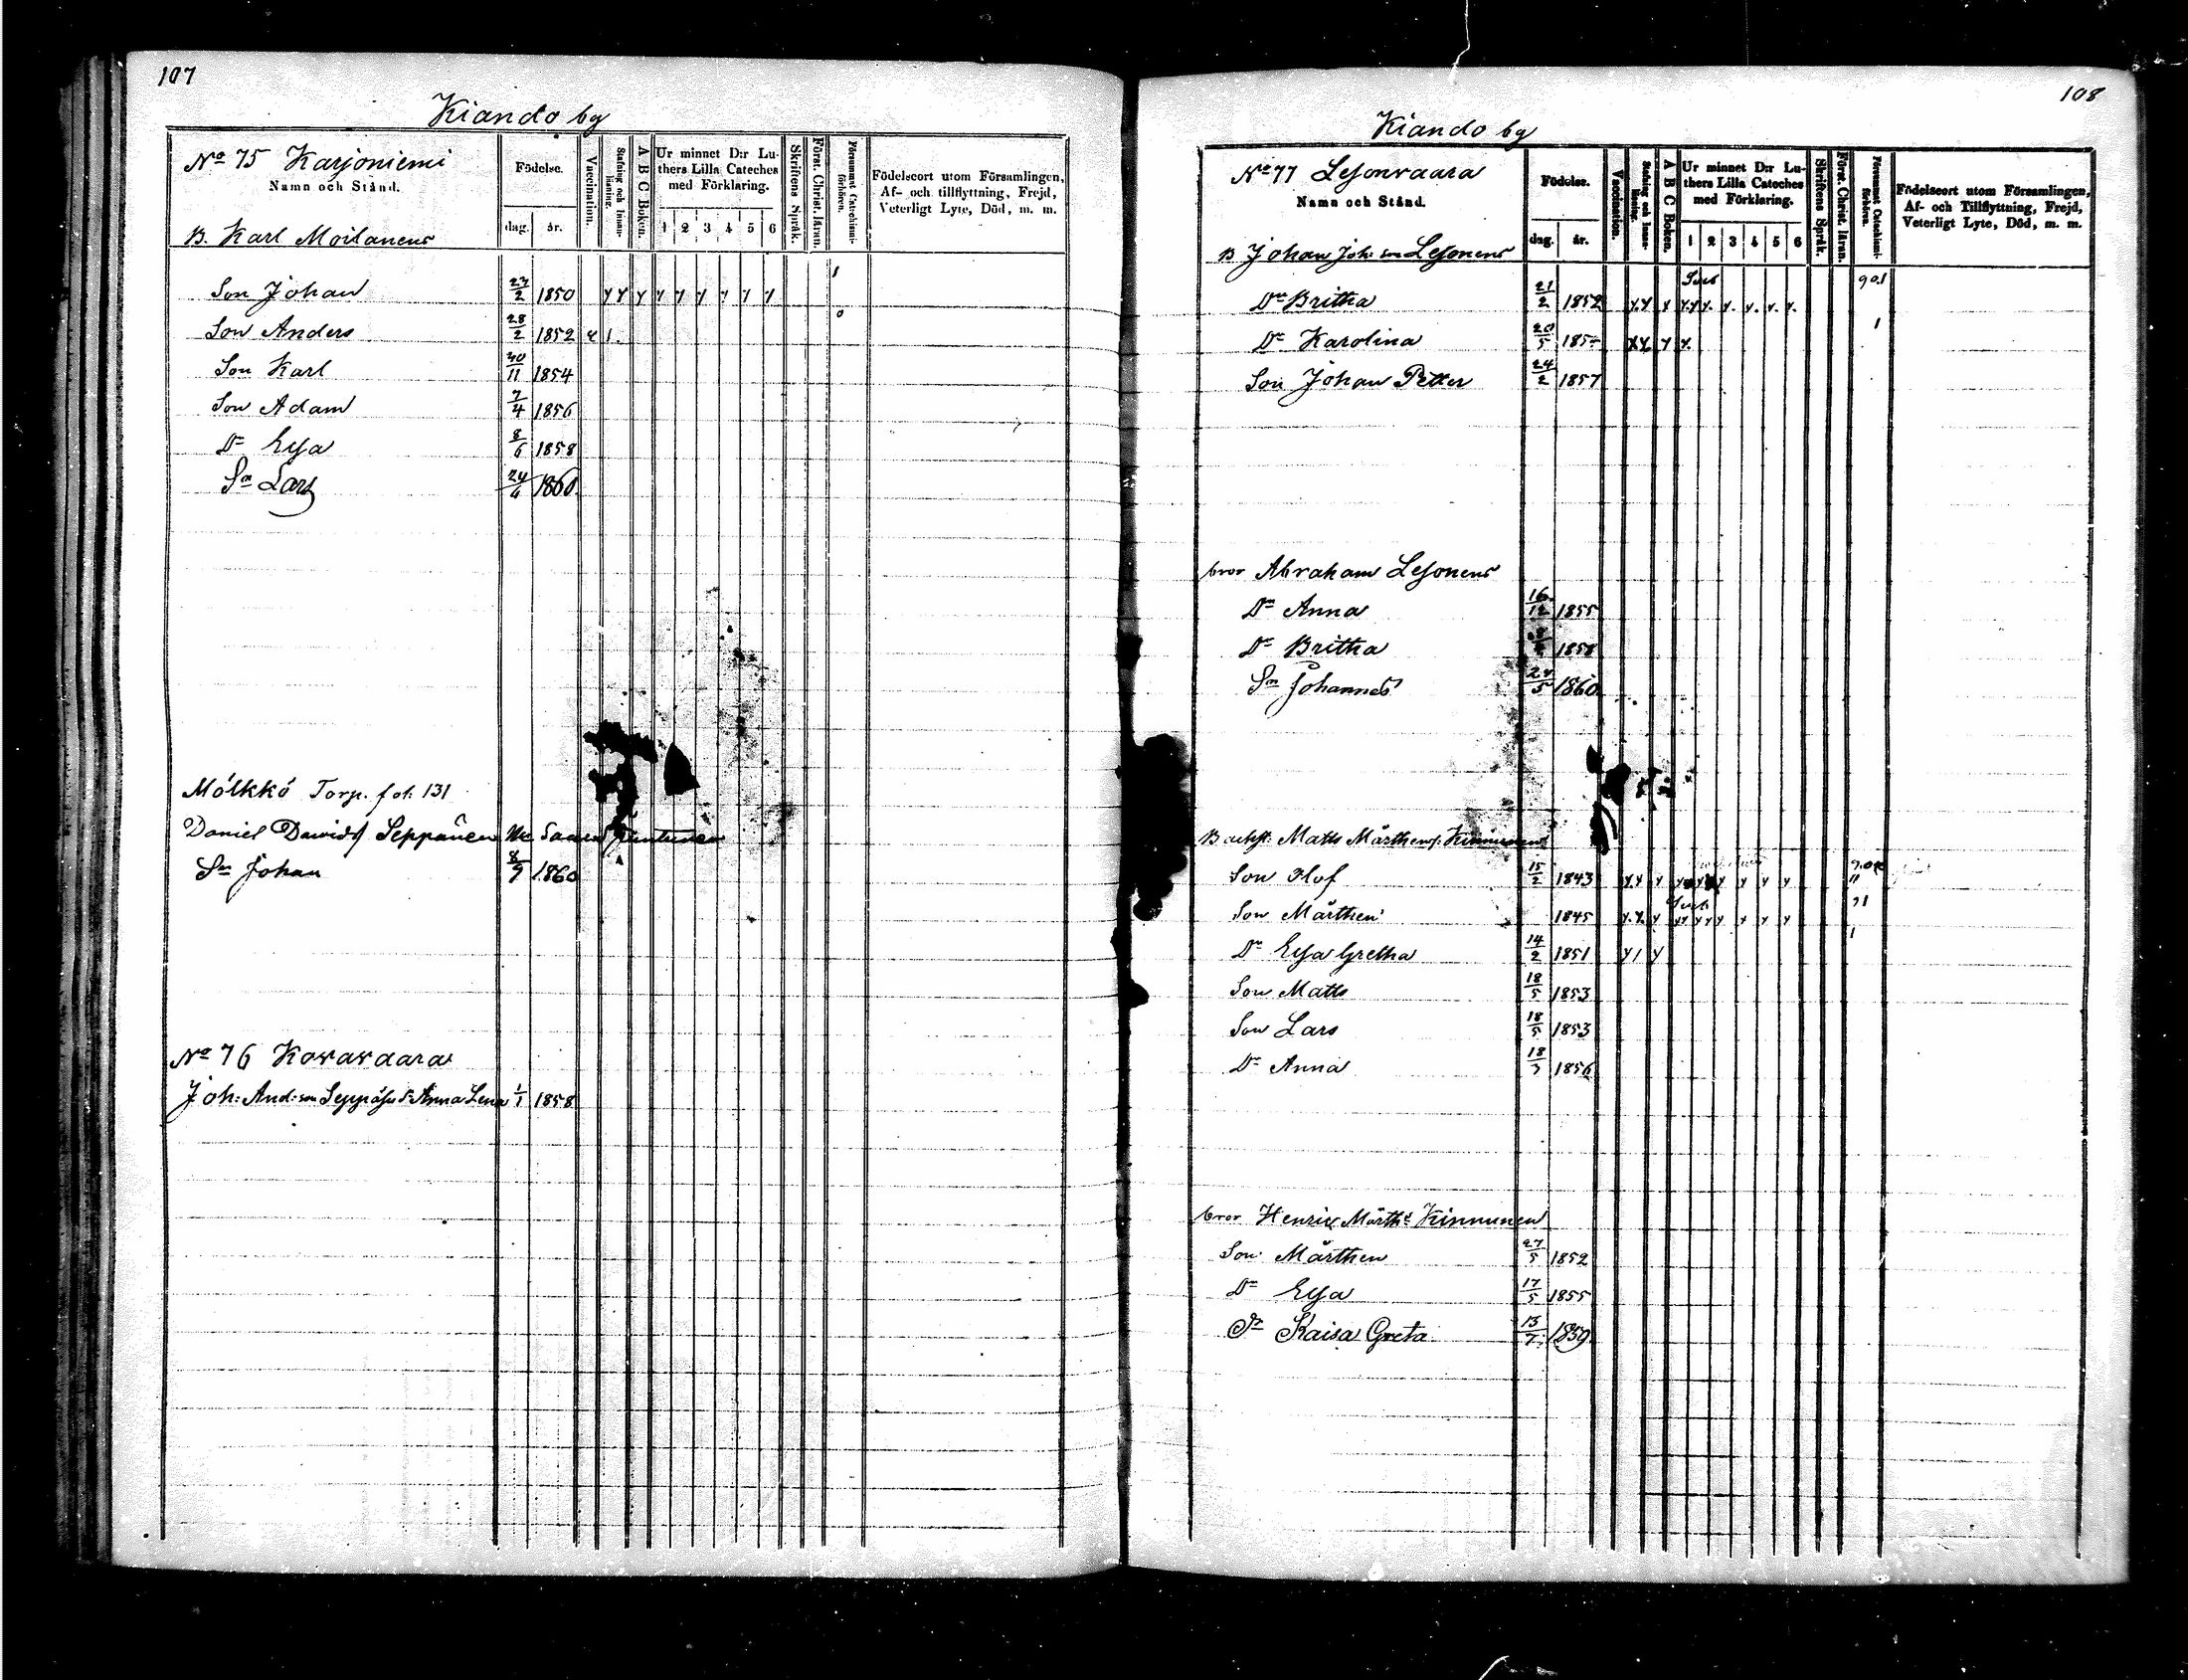 107
Kiando by
No 75 Karjoniemi
Namn och Stånd.
Födelse.
dag. år.
Vaccination.
Stafning och Innanläsning.
A B C Boken.
Ur minnet D:r Luthers Lilla Cateches med Förklaring.
1 2 3 4 5 6
Skriftens Språk.
Först. Christ. läran.
Försummat Catechismiförhören.
Födelseort utom Församlingen,
Af- och tillflyttning, Frejd,
Veterligt Lyte, Död, m. m.
B. Karl Moilanens
Son Johan 27/2 1850 1
Son Anders 28/2 1852 0
Son Karl 30/11 1854
Son Adam 7/4 1856
Dr Elsa 8/6 1858
Sn Lars 24/4 1860
Mölkkö Torp. fol. 131
Daniel Davids Seppänen
Sn Johan 8/7 1860
No 76 Kovavaara
Joh: And:son Seppäs dr Anna Lena 1/1 1858
108
Kiando by
No 77 Lesonvaara
Namn och Stånd.
Födelse.
dag. år.
Vaccination.
Stafning och Innanläsning.
A B C Boken.
Ur minnet D:r Luthers Lilla Cateches med Förklaring.
1 2 3 4 5 6
Skriftens Språk.
Först. Christ. läran.
Försummat Catechismiförhören.
Födelseort utom Församlingen,
Af- och Tillflyttning, Frejd,
Veterligt Lyte, Död, m. m.
B Johan Joh: son Lesonens
Dr Britha 21/2 1852 901
Dr Karolina 20/5 1
Son Johan Petter 24/2 1857
bror Abraham Lesonens
Dr Anna 16/12 1855
Dr Britha 1858
Sn Johannes 24/5 1860
Matts Mårthens. Kinnunens
Son Olof 15/2 1843
Son Mårthen 1845
Dr Elsa Gretha 14/2 1851 1
Son Matts 18/5 1853
Son Lars 18/5 1853
Dr Anna 18/3 1856
bror Henric Mårths Kinnunen
Son Mårthen 27/5 1852
Dr Elsa 17/5 1855
Dr Kaisa Greta 13/7 1859